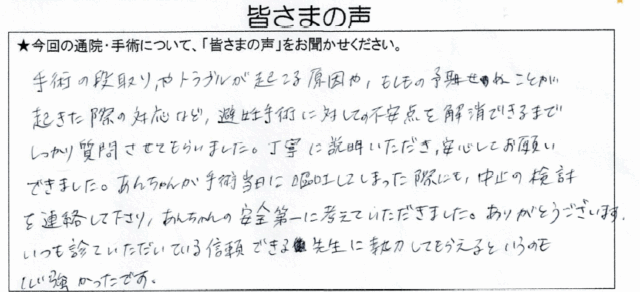 皆さまの声
★今回の通院・手術について、「皆さまの声」をお聞かせください。
手術の段取り、やトラブルが起こる原因や、もしもの予期せぬことが
起きた際の対応など、避妊手術に対しての不安点を解消できるまで
しっかり質問させてもらいました。丁寧に説明いただき、安心してお願い
できました。あんちゃんが手術当日に嘔吐してしまった際にも、中止の検討
を連絡して下さり、あんちゃんの安全第一に考えていただきました。ありがとうございます。
いつも診ていただいている信頼できる先生に執刀してもらえるというのも
心強かったです。